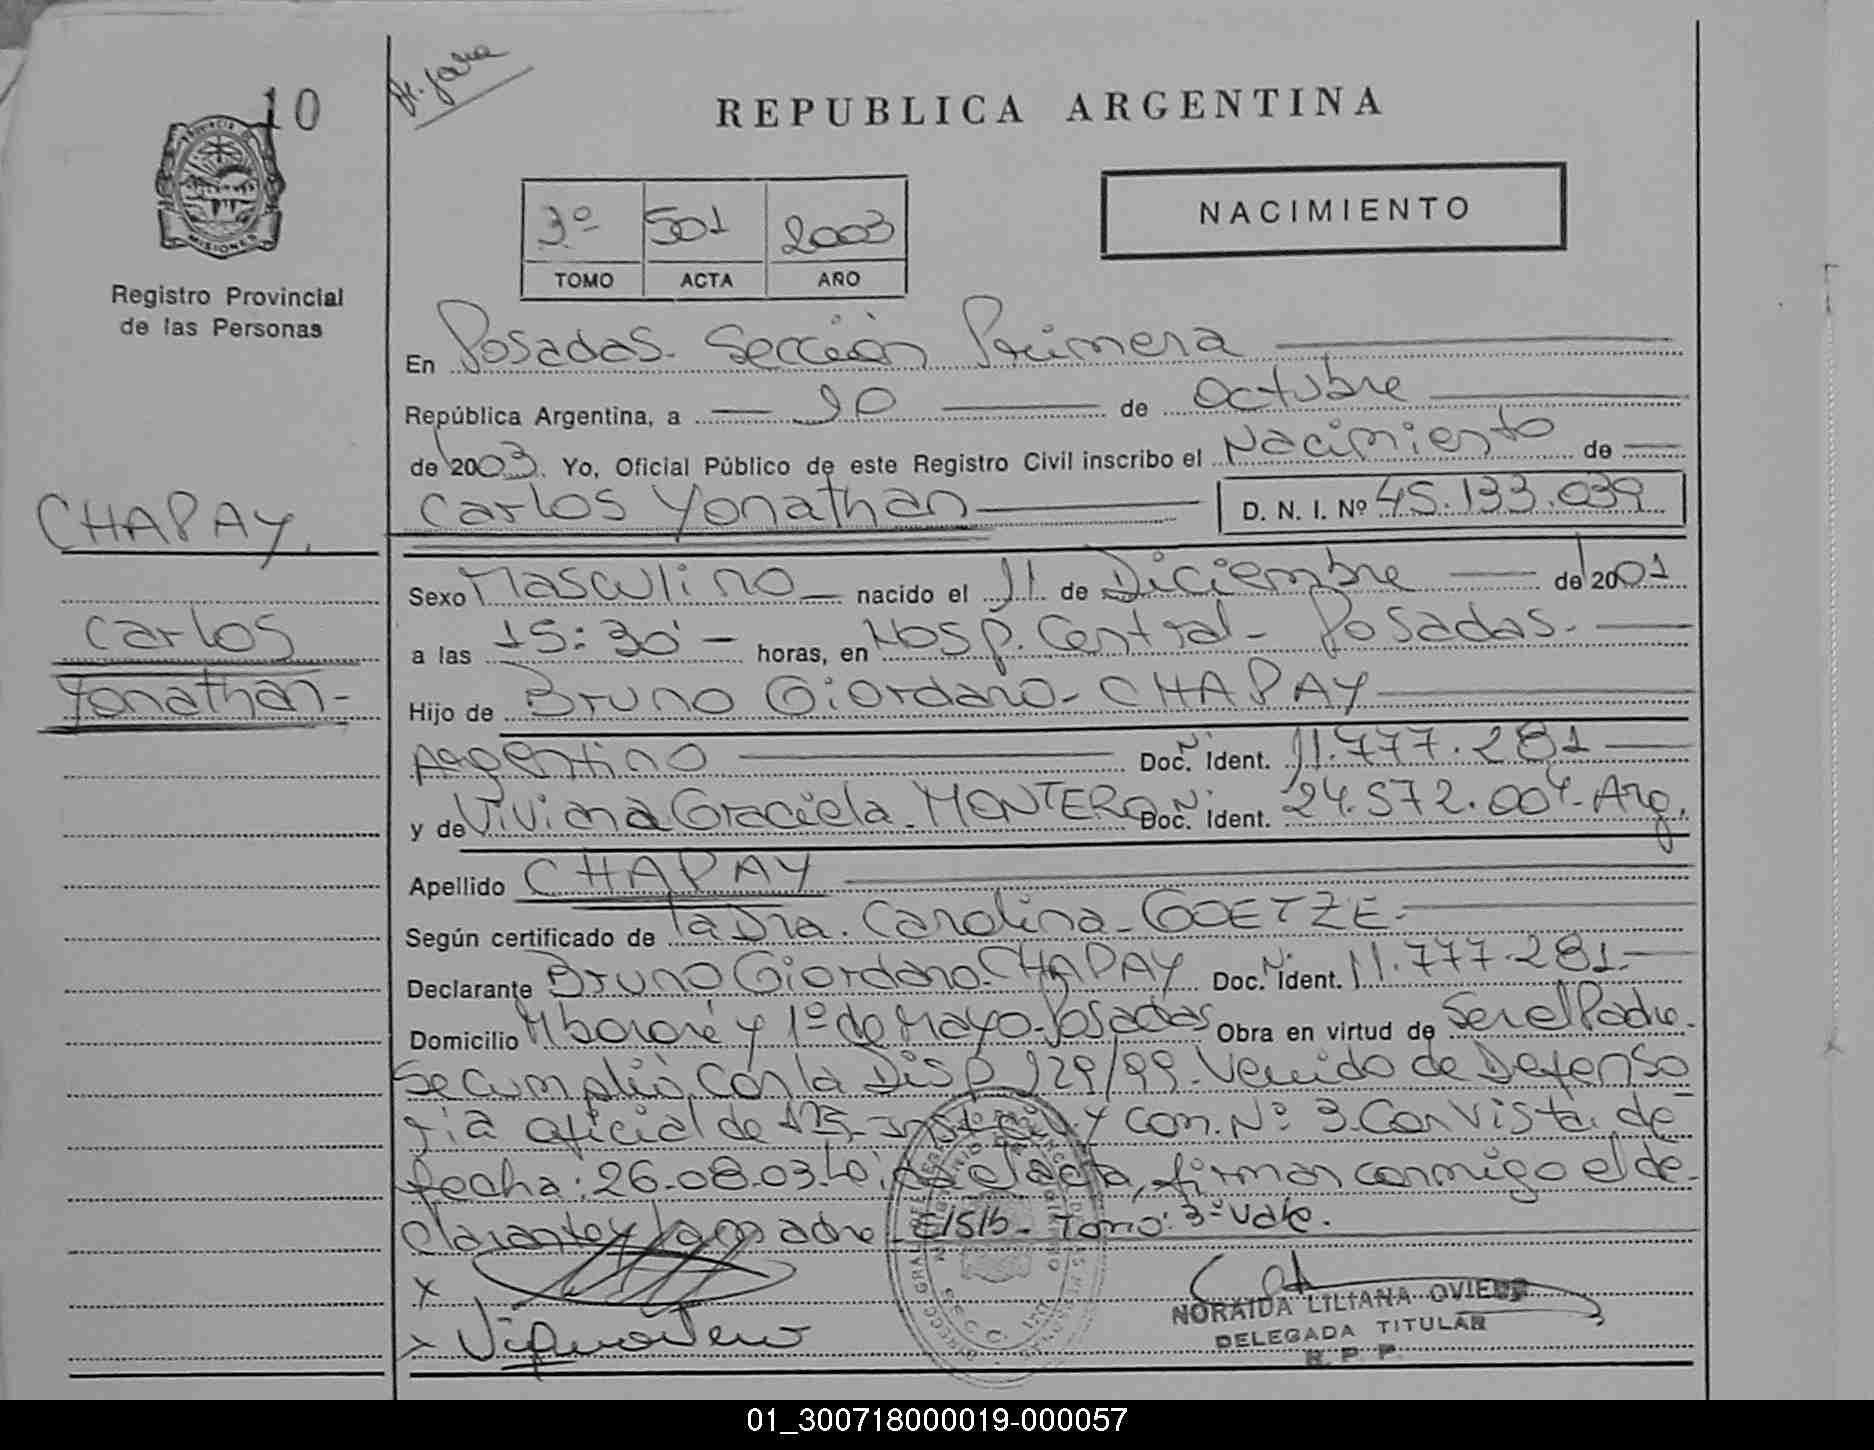 10
REPUBLICA ARGENTINA
PROVINCIA DE
MISIONES
Registro Provincial
de las Personas
3º 501 2003
TOMO ACTA AÑO
NACIMIENTO
En Posadas. Sección Primera
República Argentina, a 20 de Octubre
de 2003. Yo, Oficial Público de este Registro Civil inscribo el Nacimiento de
Carlos Yonathan D. N. I. Nº 45.133.039
CHAPAY.
Carlos
Yonathan-
Sexo Masculino nacido el 11 de Diciembre de 2001
a las 15:30' horas, en Hosp. Central - Posadas.
Hijo de Bruno Giordano - CHAPAY
Argentino Doc. N. Ident. 11.777.281
y de Viviana Graciela. MONTERO Doc. N. Ident. 24.572.004-Arg.
Apellido CHAPAY
Según certificado de la Dra. Carolina - GOETZE.
Declarante Bruno Giordano. CHAPAY Doc. N. Ident. 11.777.281.
Domicilio Mbororé y 1º de Mayo-Posadas Obra en virtud de Ser el Padre.
Se cumplió con la Disp 129/99. Venido de Defenso
ría oficial de y con. Nº 3. Con vista de
fecha: 26-08-03. el acta, firman conmigo el de-
clarante y la madre - E/S/b - Tomo: 3º Vale.
x
x
NORAIDA LILIANA OVIEDO
DELEGADA TITULAR
R. P. P.
01_300718000019-000057